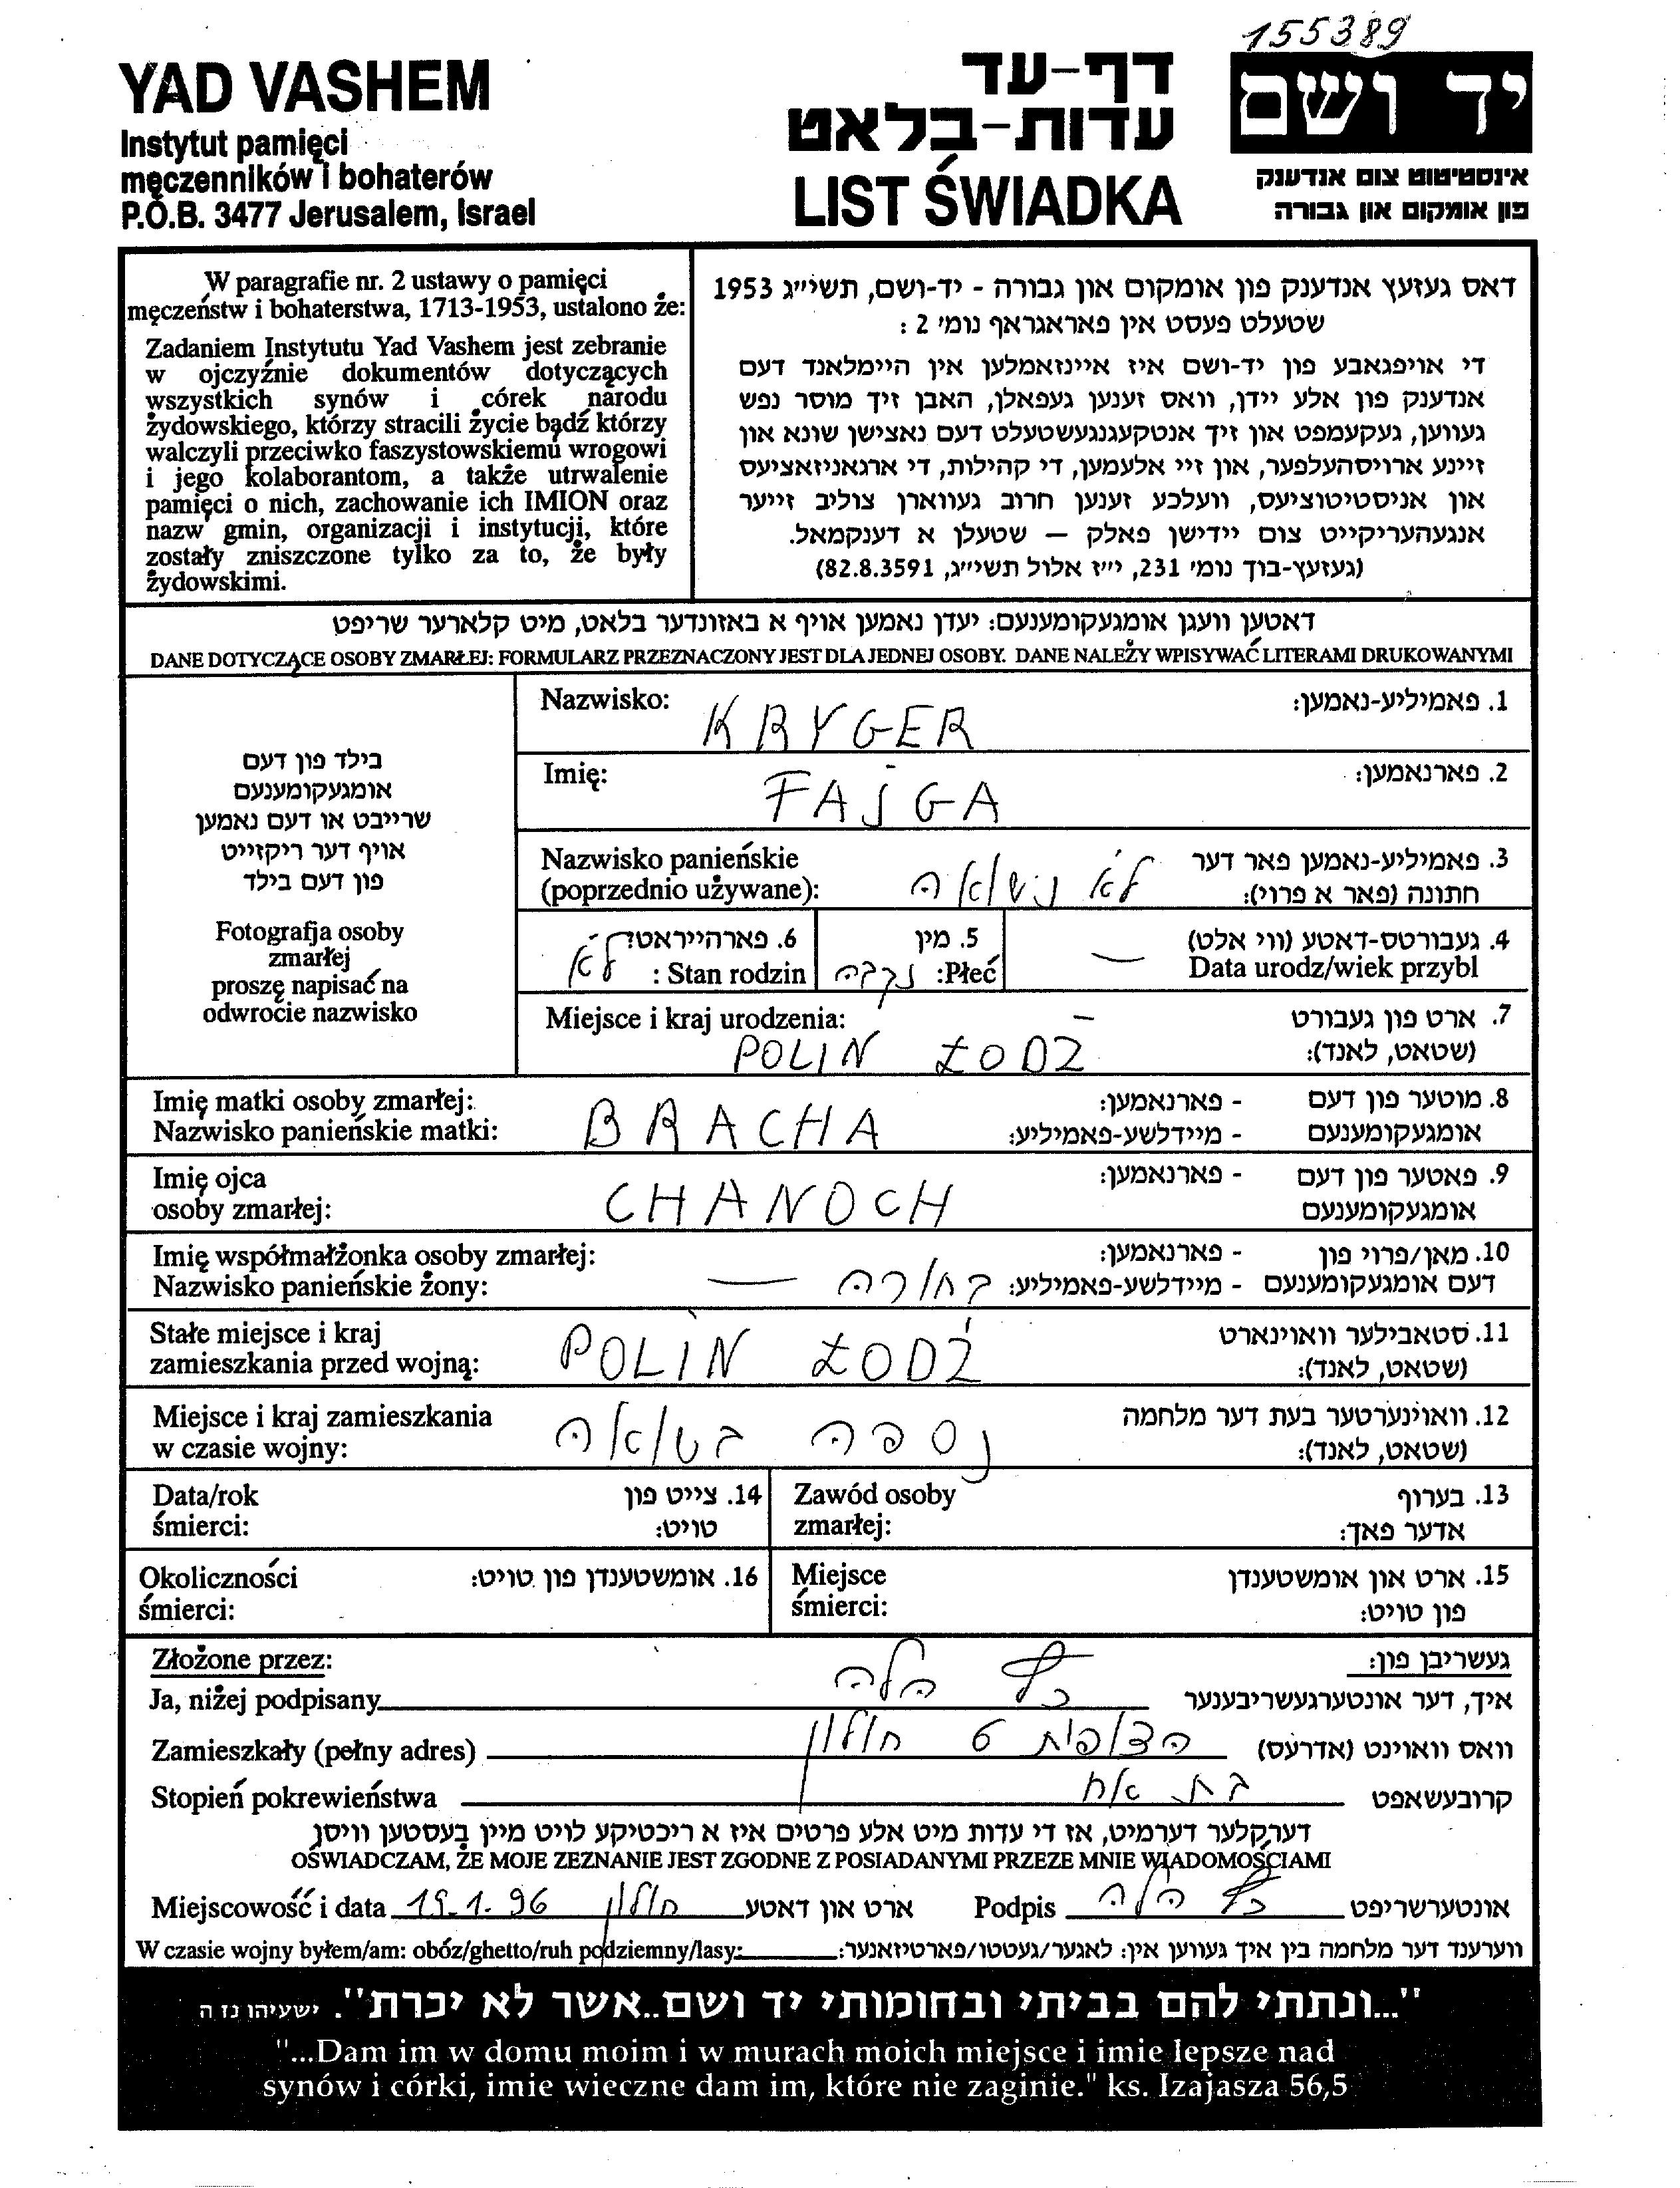 155389
YAD VASHEM
Instytut pamięci
męczenników i bohaterów
P.O.B. 3477 Jerusalem, Israel
דף-עד
עדות-בלאט
LIST ŚWIADKA
יד ושם
אינסטיטוט צום אנדענק
פון אומקום און גבורה
W paragrafie nr. 2 ustawy o pamięci
męczeństw i bohaterstwa, 1713-1953, ustalono że:
Zadaniem Instytutu Yad Vashem jest zebranie
w ojczyźnie dokumentów dotyczących
wszystkich synów i córek narodu
żydowskiego, którzy stracili życie bądź którzy
walczyli przeciwko faszystowskiemu wrogowi
i jego kolaborantom, a także utrwalenie
pamięci o nich, zachowanie ich IMION oraz
nazw gmin, organizacji i instytucji, które
zostały zniszczone tylko za to, że były
żydowskimi.
דאס געזעץ אנדענק פון אומקום און גבורה - יד-ושם, תשי״ג 1953
שטעלט פעסט אין פאראגראף נומ׳ 2 :
די אויפגאבע פון יד-ושם איז איינזאמלען אין היימלאנד דעם
אנדענק פון אלע יידן, וואס זענען געפאלן, האבן זיך מוסר נפש
געווען, געקעמפט און זיך אנטקעגנגעשטעלט דעם נאצישן שונא און
זיינע ארויסהעלפער, און זיי אלעמען, די קהילות, די ארגאניזאציעס
און אניסטיטוציעס, וועלכע זענען חרוב געווארן צוליב זייער
אנגעהעריקייט צום יידישן פאלק – שטעלן א דענקמאל.
(געזעץ-בוך נומ׳ 231, י״ז אלול תשי״ג, 82.8.3591)
דאטען וועגן אומגעקומענעם: יעדן נאמען אויף א באזונדער בלאט, מיט קלארער שריפט
DANE DOTYCZĄCE OSOBY ZMARŁEJ: FORMULARZ PRZEZNACZONY JEST DLA JEDNEJ OSOBY. DANE NALEŻY WPISYWAĆ LITERAMI DRUKOWANYMI
בילד פון דעם
אומגעקומענעם
שרייבט או דעם נאמען
אויף דער ריקזייט
פון דעם בילד
Fotografja osoby
zmarłej
proszę napisać na
odwrocie nazwisko
Nazwisko: KRYGER 1. פאמיליע-נאמען:
Imię: FAJGA 2. פארנאמען:
Nazwisko panieńskie 3. פאמיליע-נאמען פאר דער
(poprzednio używane): לא נישאה חתונה (פאר א פרוי):
4. געבורטס-דאטע (ווי אלט)
Data urodz/wiek przybl —
5. מין
Płeć: נקבה
6. פארהייראט?
Stan rodzin : לא
Miejsce i kraj urodzenia: 7. ארט פון געבורט
POLIN ŁODZ (שטאט, לאנד):
Imię matki osoby zmarłej: - פארנאמען: 8. מוטער פון דעם
Nazwisko panieńskie matki: BRACHA - מיידלשע-פאמיליע: אומגעקומענעם
Imię ojca - פארנאמען: 9. פאטער פון דעם
osoby zmarłej: CHANOCH אומגעקומענעם
Imię współmałżonka osoby zmarłej: - פארנאמען: 10. מאן/פרוי פון
Nazwisko panieńskie żony: — בחורה - מיידלשע-פאמיליע: דעם אומגעקומענעם
Stałe miejsce i kraj 11. סטאבילער וואוינארט
zamieszkania przed wojną: POLIN ŁODŹ (שטאט, לאנד):
Miejsce i kraj zamieszkania 12. וואוינערטער בעת דער מלחמה
w czasie wojny: נספה בשואה (שטאט, לאנד):
Data/rok 14. צייט פון
śmierci: טויט:
Zawód osoby 13. בערוף
zmarłej: אדער פאך:
Okoliczności 16. אומשטענדן פון טויט:
śmierci:
Miejsce 15. ארט און אומשטענדן
śmierci: פון טויט:
Złożone przez: געשריבן פון:
Ja, niżej podpisany כץ הלה איך, דער אונטערגעשריבענער
Zamieszkały (pełny adres) הצופית 6 חולון וואס וואוינט (אדרעס)
Stopień pokrewieństwa בת אח קרובעשאפט
דערקלער דערמיט, אז די עדות מיט אלע פרטים איז א ריכטיקע לויט מיין בעסטען וויסן
OŚWIADCZAM, ŻE MOJE ZEZNANIE JEST ZGODNE Z POSIADANYMI PRZEZE MNIE WIADOMOŚCIAMI
Miejscowość i data 19.1.96 חולון ארט און דאטע Podpis כץ הלה אונטערשריפט
W czasie wojny byłem/am: obóz/ghetto/ruh podziemny/lasy: ווערענד דער מלחמה בין איך געווען אין: לאגער/געטטו/פארטיזאנער:
"...ונתתי להם בביתי ובחומותי יד ושם..אשר לא יכרת". ישעיהו נז ה
"...Dam im w domu moim i w murach moich miejsce i imie lepsze nad
synów i córki, imie wieczne dam im, które nie zaginie." ks. Izajasza 56,5